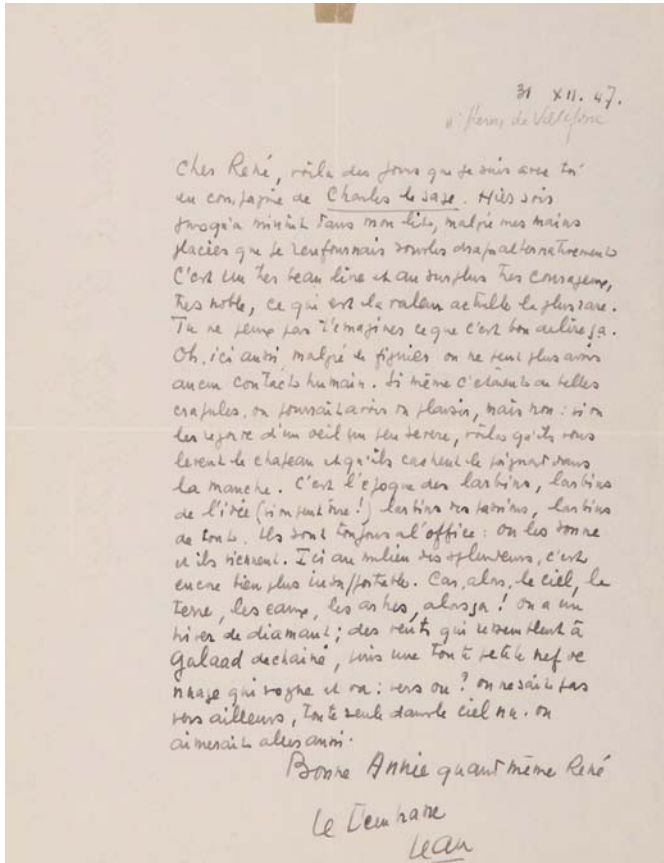 31 XII. 47.
de
Cher René, voilà des jours que je suis avec toi
en compagnie de Charles le sage. Hier soir
jusqu'à minuit dans mon lit, malgré mes mains
glacées que je renfournais sous les draps alternativement
C'est un très beau livre et au surplus très courageux,
très noble, ce qui est la valeur actuelle la plus rare.
Tu ne peux pas t'imaginer ce que c'est bon de lire ça.
Oh, ici aussi malgré les figuiers on ne peut plus avoir
aucun contact humain. Si même c'étaient de belles
crapules, on pourrait avoir du plaisir, mais non: si on
les regarde d'un oeil un peu sévère, voilà qu'ils vous
lèvent le chapeau et qu'ils cachent le poignard dans
la manche. C'est l'époque des larbins, larbins
de l'idée (si on peut dire!) larbins des larbins
de tout. Ils sont toujours à l'office: on les sonne
et ils viennent. Ici au milieu des splendeurs, c'est
encore bien plus insupportable. Car, alors, le ciel, la
terre, les eaux, les arbres, alors ça! On a un
hiver de diamant; des vents qui ressemblent à
Galaad déchaîné, puis une toute petite nef de
nuage qui vogne et va: vers où? on ne sait pas
vers ailleurs, toute seule dans le ciel nu. On
aimerait aller aussi.
Bonne Année quand même René
Jean